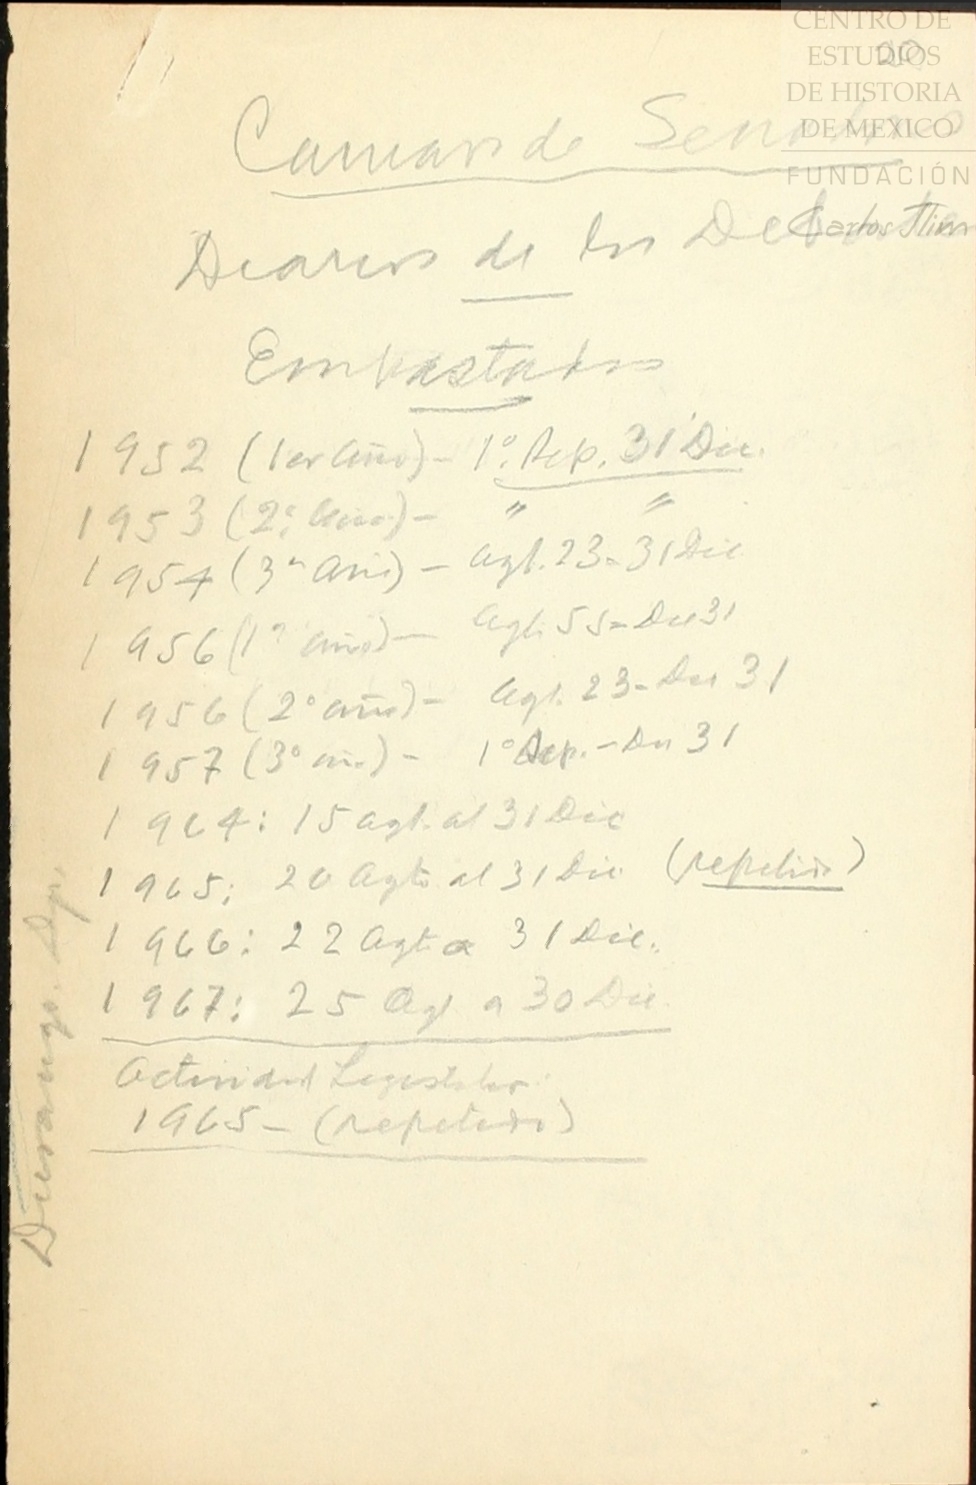 20
CENTRO DE
ESTUDIOS
DE HISTORIA
DE MEXICO
FUNDACIÓN
Carlos Slim
Camara de Senadores
Diarios de los Debates
Empastados
1952 (1er Año) - 1º Sep. 31 Dic.
1953 (2º Año) - " "
1954 (3er Año) - Agt. 23 - 31 Dic
1956 (1er año) - Agt. 55 - Dic 31
1956 (2º año) - Agt. 23 - Dic 31
1957 (3º año) - 1º Sep. - Dic 31
1964: 15 agt. al 31 Dic
1965: 20 Agto al 31 Dic (repetido)
1966: 22 Agt a 31 Dic.
1967: 25 Agt a 30 Dic.
Actividad Legislativa
1965 - (repetido)
Durango. Dgo.